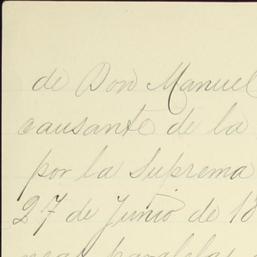 de Don Manuel
causante de la
por la Suprema
27 de Junio de 18
neas paralelas